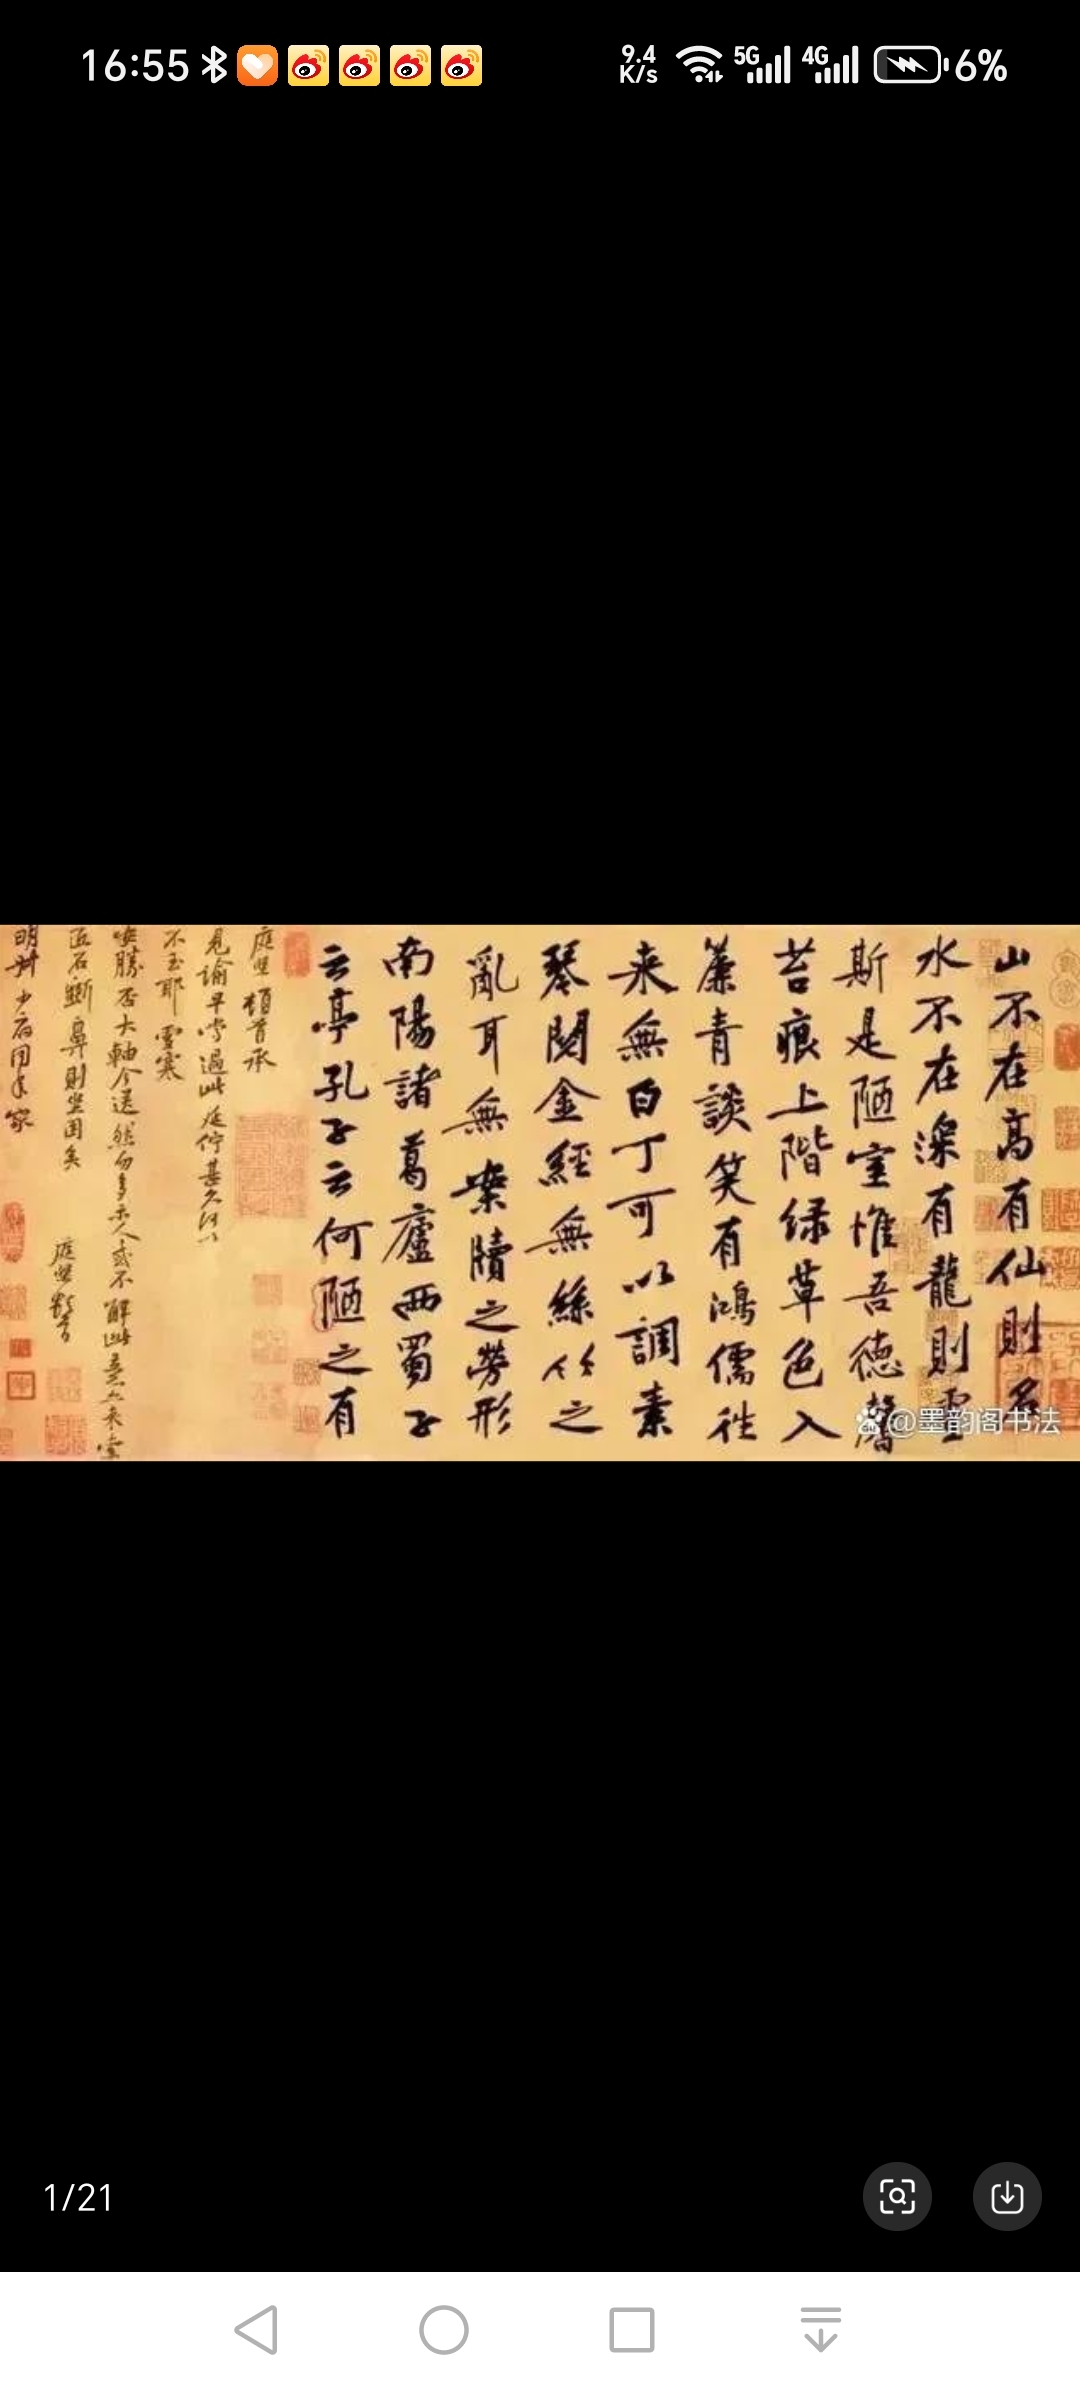 16:55
9.4 K/s
5G
4G
6%
山不在高有仙則名
水不在深有龍則靈
斯是陋室惟吾德馨
苔痕上階绿草色入
簾青談笑有鴻儒往
来無白丁可以調素
琴閱金經無絲竹之
亂耳無案牘之勞形
南陽諸葛廬西蜀子
云亭孔子云何陋之有
庭堅頓首承
見諭早嘗過此延佇甚久
不至耶雪寒
勝否大軸今送然勿多示人或不解此意
匠石斵鼻則坐困矣
庭堅頓首
明叔少府同年家
@墨韵阁书法
1/21